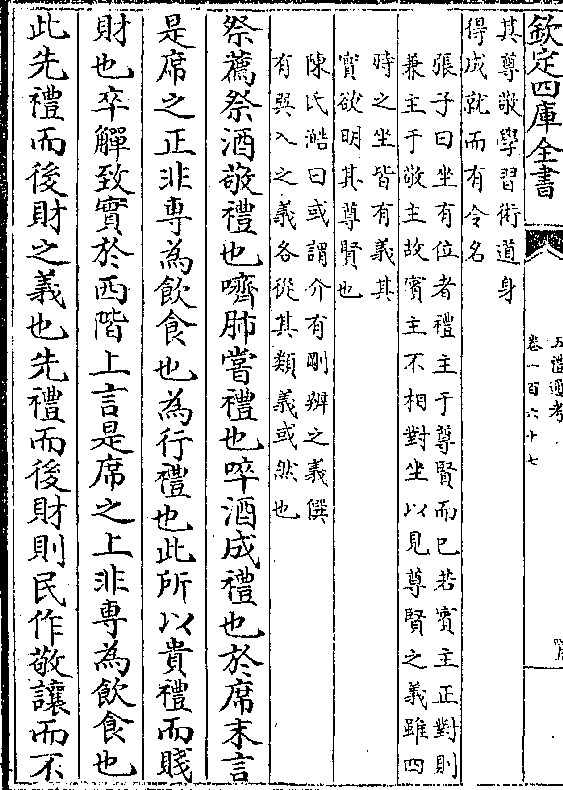 欽定四庫全書
五禮通考
卷一百六十七
其尊敬學習術道身
得成就而有令名
張子曰坐有位者禮主于尊賢而已若賓主正對則
兼主于敬主故賓主不相對坐以見尊賢之義雖四
時之坐皆有義其
實欲明其尊賢也
陳氏澔曰或謂介有剛辨之義僎
有巽入之義各從其類義或然也
祭薦祭酒敬禮也嚌肺嘗禮也啐酒成禮也於席末言
是席之正非専為飲食也為行禮也此所以貴禮而賤
財也卒觶致實於西階上言是席之上非専為飲食也
此先禮而後財之義也先禮而後財則民作敬讓而不